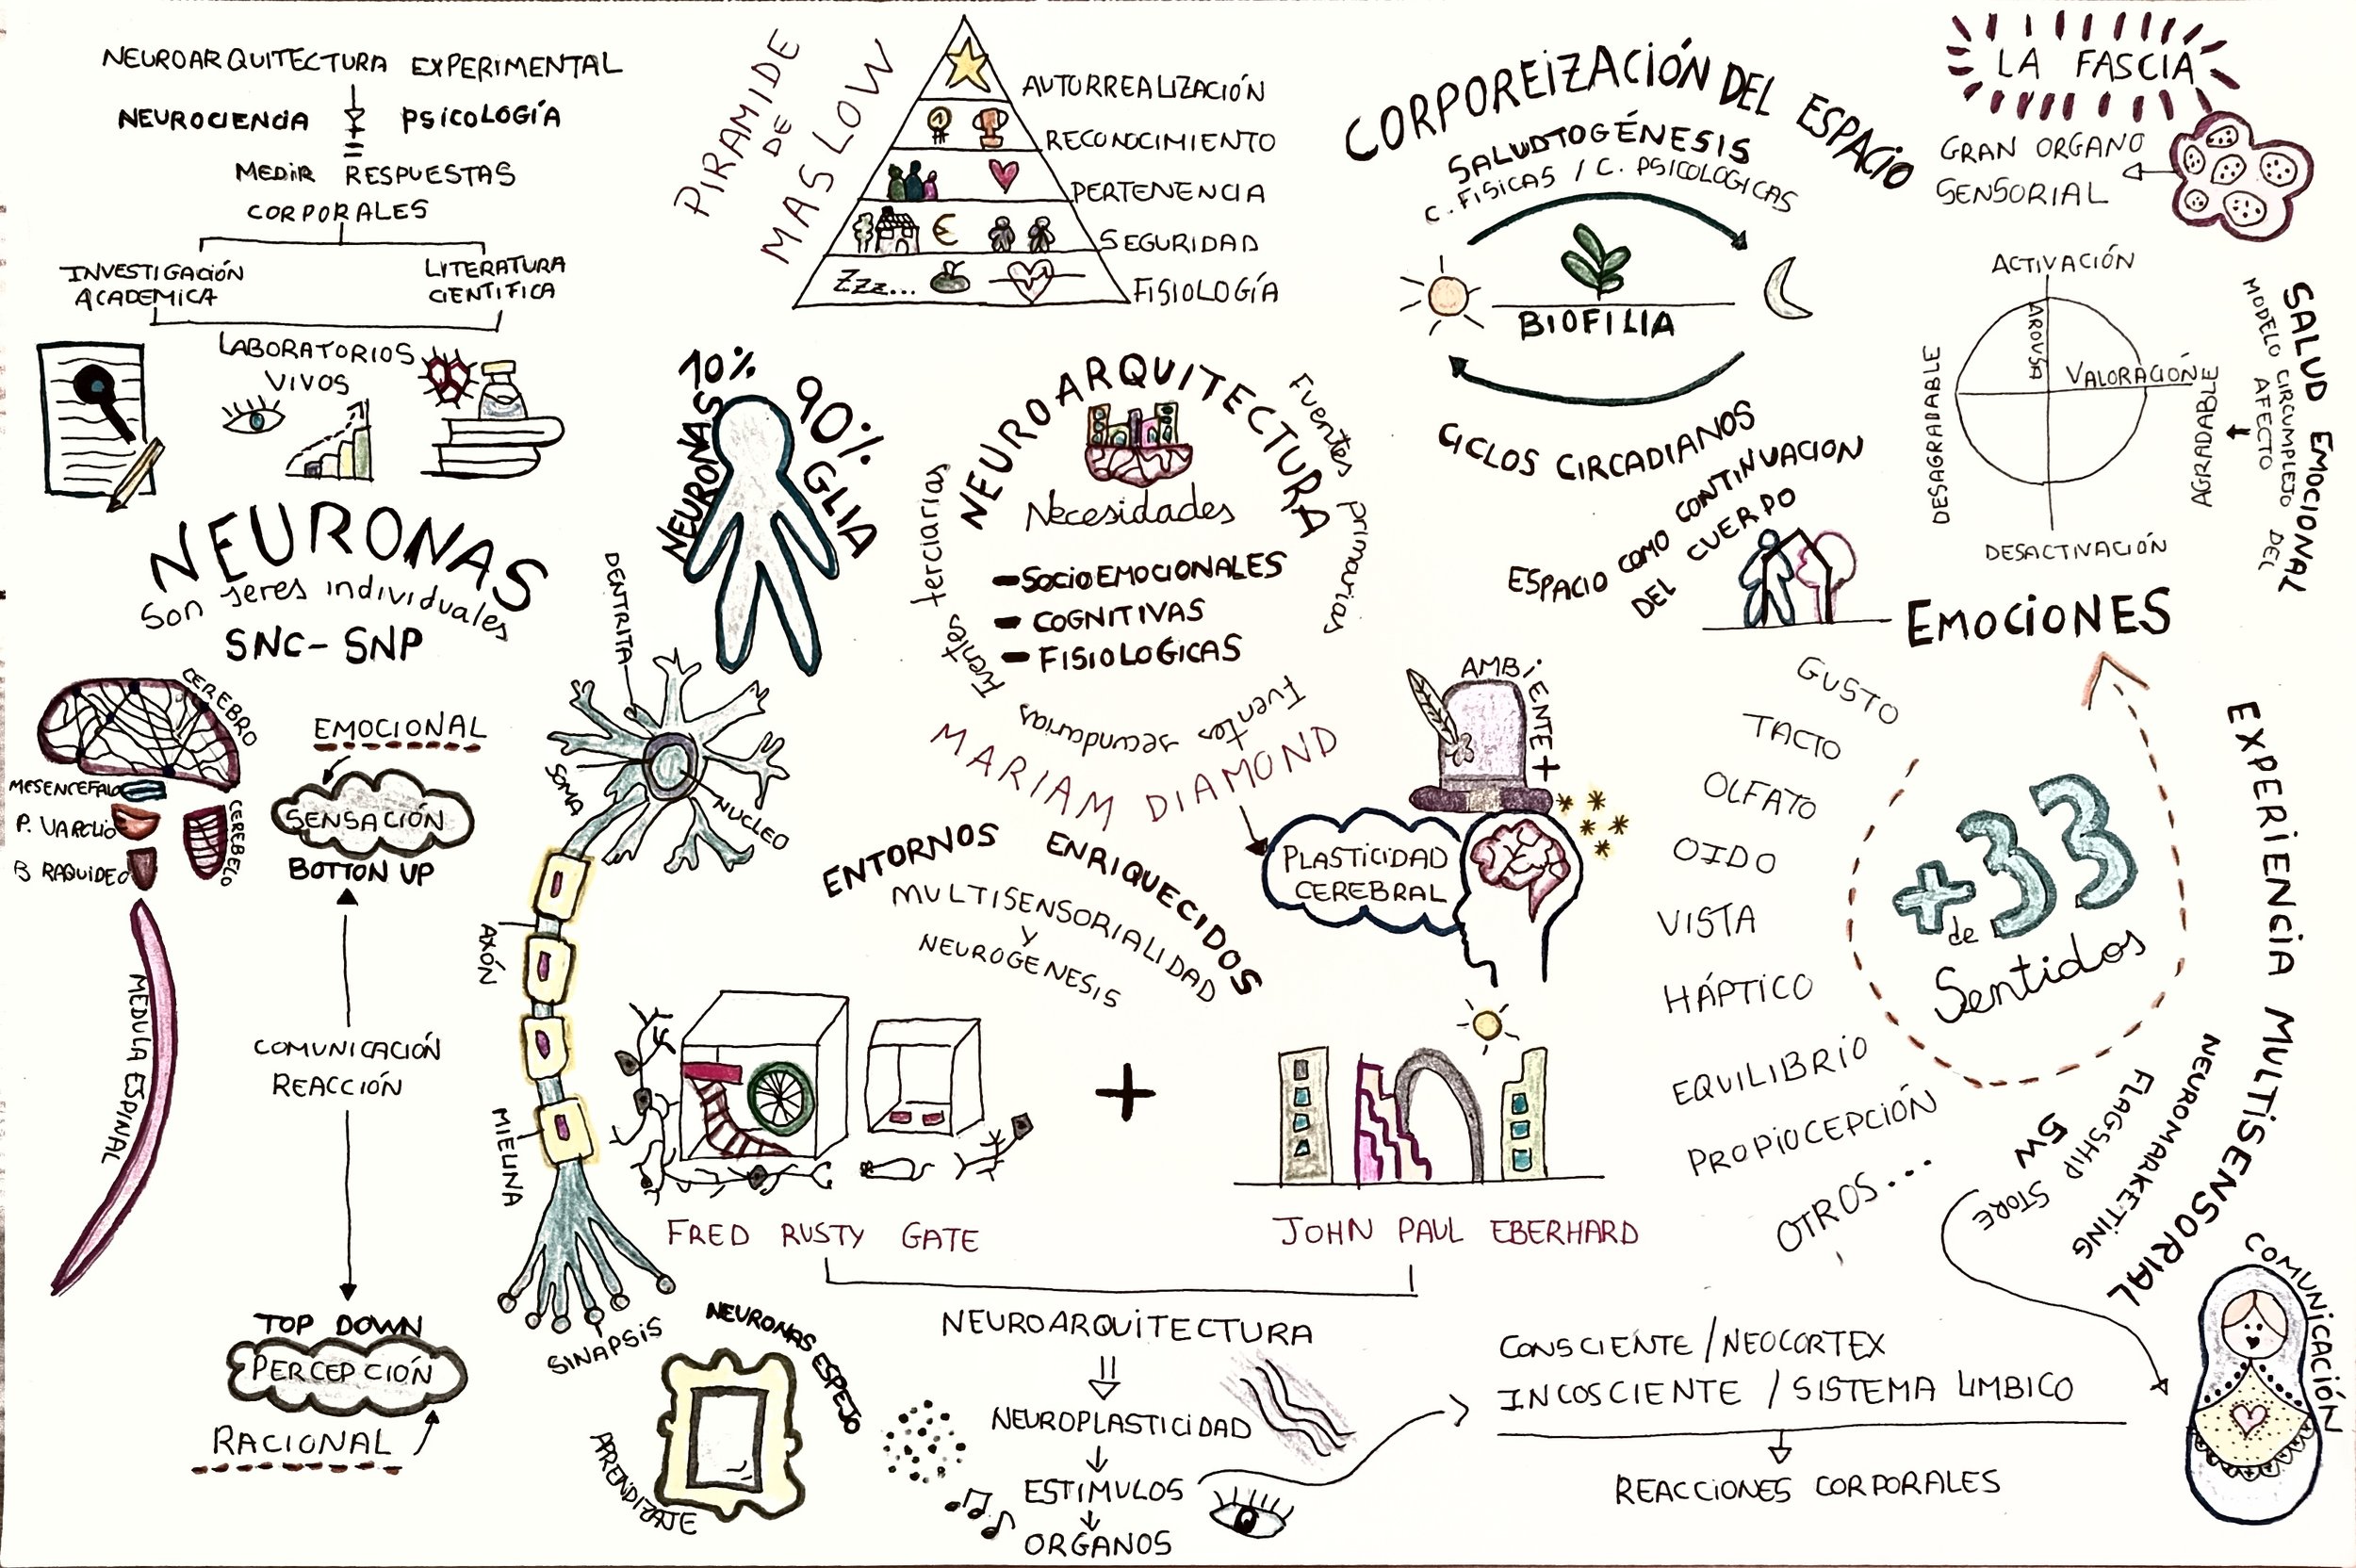 NEUROARQUITECTURA EXPERIMENTAL
NEUROCIENCIA + PSICOLOGÍA
=
MEDIR RESPUESTAS
CORPORALES
INVESTIGACIÓN
ACADEMICA
LITERATURA
CIENTIFICA
LABORATORIOS
VIVOS
PIRAMIDE
DE
MASLOW
AUTORREALIZACIÓN
RECONOCIMIENTO
PERTENENCIA
SEGURIDAD
€
FISIOLOGÍA
Zzz...
CORPOREIZACIÓN DEL ESPACIO
SALUDTOGÉNESIS
C. FISICAS / C. PSICOLOGICAS
BIOFILIA
CICLOS CIRCADIANOS
ESPACIO COMO CONTINUACION
DEL CUERPO
LA FASCIA
GRAN ORGANO
SENSORIAL
ACTIVACIÓN
AROUSA
VALORACIÓN
DESAGRADABLE
AGRADABLE
DESACTIVACIÓN
SALUD EMOCIONAL
MODELO CIRCUMPLEJO DEL
AFECTO
NEURONAS
Son seres individuales
SNC - SNP
10%
NEURONAS
90%
GLIA
NEUROARQUITECTURA
Necesidades
- SOCIOEMOCIONALES
- COGNITIVAS
- FISIOLOGICAS
Fuentes primarias
Fuentes secundarias
Fuentes terciarias
MARIAM DIAMOND
ENTORNOS ENRIQUECIDOS
MULTISENSORIALIDAD
Y
NEUROGENESIS
AMBIENTE +
PLASTICIDAD
CEREBRAL
CEREBRO
MESENCEFALO
P. VAROLIO
B RAQUIDEO
CEREBELO
MEDULA ESPINAL
EMOCIONAL
SENSACIÓN
BOTTON UP
COMUNICACIÓN
REACCIÓN
TOP DOWN
PERCEPCIÓN
RACIONAL
DENTRITA
SOMA
NUCLEO
AXÓN
MIELINA
SINAPSIS
NEURONAS ESPEJO
APRENDIZAJE
FRED RUSTY GATE
+
JOHN PAUL EBERHARD
NEUROARQUITECTURA
NEUROPLASTICIDAD
ESTIMULOS
ORGANOS
CONSCIENTE / NEOCORTEX
INCOSCIENTE / SISTEMA LIMBICO
REACCIONES CORPORALES
EMOCIONES
GUSTO
TACTO
OLFATO
OIDO
VISTA
HÁPTICO
EQUILIBRIO
PROPIOCEPCIÓN
OTROS...
+ de 33
Sentidos
EXPERIENCIA MULTISENSORIAL
NEUROMARKETING
FLAGSHIP STORE
5W
COMUNICACIÓN